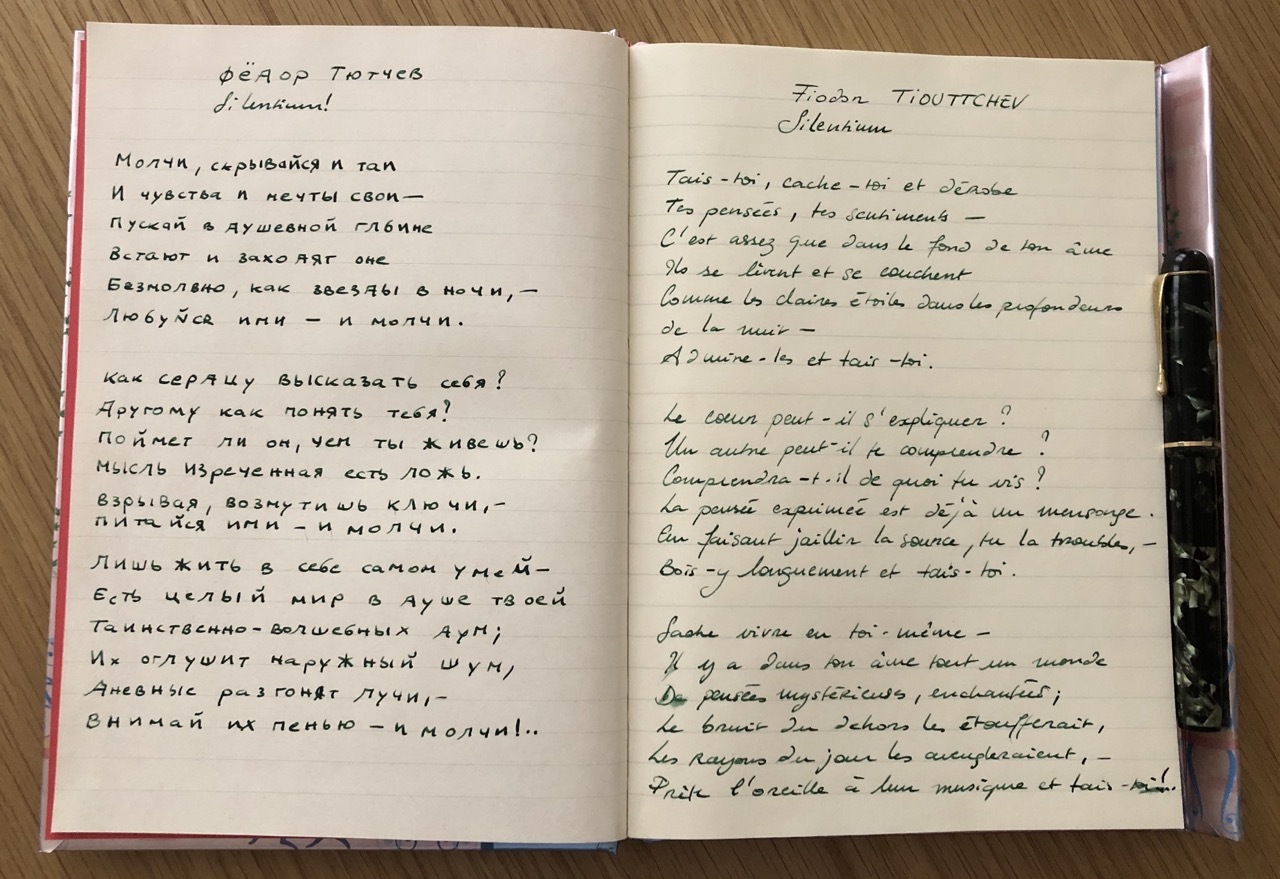 Фёдор Тютчев
Silentium!
Молчи, скрывайся и таи
И чувства и мечты свои—
Пускай в душевной глбине
Встают и заходят оне
Безмолвно, как звезды в ночи,—
Любуйся ими — и молчи.
Как сердцу высказать себя?
Другому как понять тебя?
Поймет ли он, чем ты живешь?
Мысль изреченная есть ложь.
Взрывая, возмутишь ключи,—
Питайся ими — и молчи.
Лишь жить в себе самом умей—
Есть целый мир в душе твоей
Таинственно-волшебных дум;
Их оглушит наружный шум,
Дневные разгонят лучи,—
Внимай их пенью — и молчи!..
Fiodor TIOUTTCHEV
Silentium
Tais-toi, cache-toi et dérobe
Tes pensées, tes sentiments —
C'est assez que dans le fond de ton âme
Ils se lèvent et se couchent
Comme les claires étoiles dans les profondeurs
de la nuit —
Admire-les et tais-toi.
Le cœur peut-il s'expliquer ?
Un autre peut-il te comprendre ?
Comprendra-t-il de quoi tu vis ?
La pensée exprimée est déjà un mensonge.
En faisant jaillir la source, tu la troubles, —
Bois-y longuement et tais-toi.
Sache vivre en toi-même —
Il y a dans ton âme tout un monde
De pensées mystérieuses, enchantées ;
Le bruit du dehors les étoufferait,
Les rayons du jour les aveugleraient, —
Prête l'oreille à leur musique et tais-toi!...